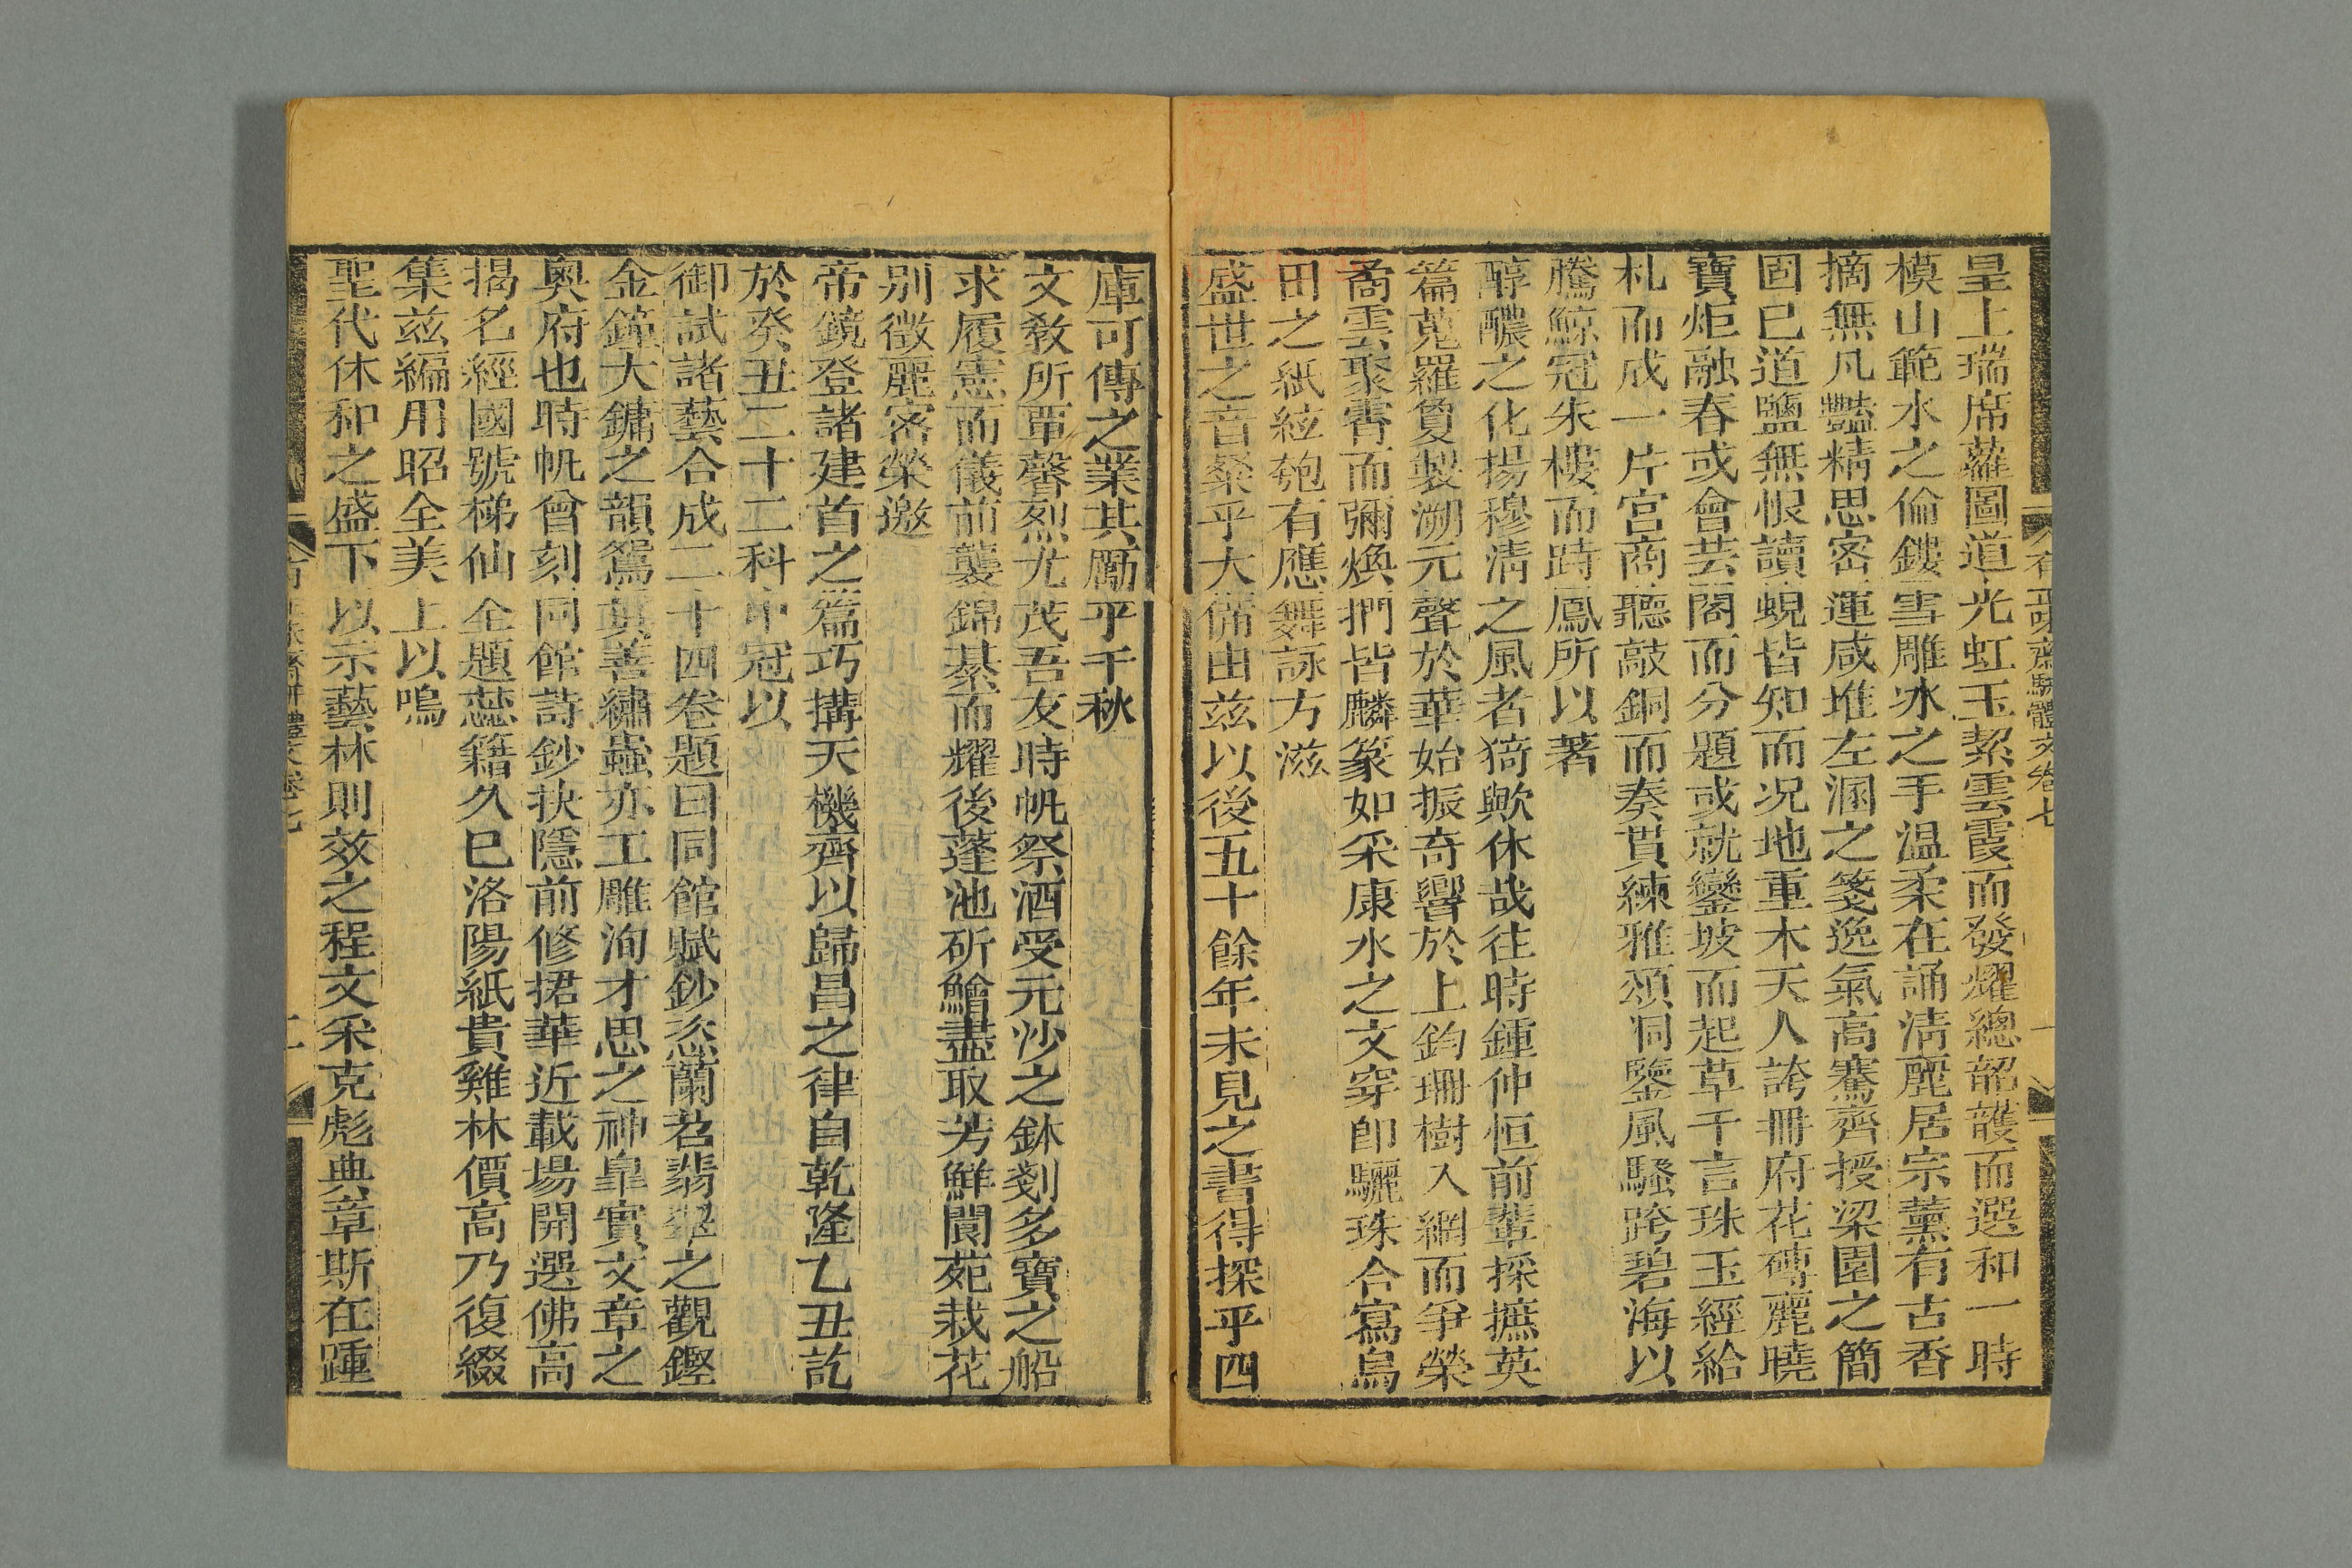 有正味齋駢體文卷七
呈上瑞席蘿圖道光虹玉絜雲霞而發耀總韶頀而選和一時
模山範水之倫鏤雪雕冰之手温柔在誦清麗居宗薰有古香
摘無凡豔精思密運咸堆左溷之箋逸氣高騫齊授梁園之簡
固已道鹽無恨讀蜆皆知而况地重木天人誇冊府花磚麗曉
寶炬融春或會芸閣而分題或就鑾坡而起草千言珠玉經給
札而成一片宮商聽敲銅而奏貫練雅頌洞鑒風騷跨碧海以
騰鯨冠朱樓而跱鳳所以著
醇醲之化揚穆清之風者猗歟休哉往時鍾仲恒前輩採摭英
篇蒐羅夐製溯元聲於華始振奇響於上鈞珊樹入網而爭榮
矞雲聚霄而彌煥捫皆麟篆如采康水之文穿即驪珠合寫烏
田之紙絃匏有應舞詠方滋
盛世之音粲乎大備由兹以後五十餘年未見之書得探乎四
庫可傳之業其勵乎千秋
文教所覃馨烈尤茂吾友時帆祭酒受元沙之鉢剗多寶之船
求履憲而儀前襲錦綦而耀後蓬池斫鱠盡取芳鮮閬苑栽花
别徵麗密榮邀
帝鏡登諸建首之篇巧搆天機齊以歸昌之律自乾隆乙丑訖
於癸丑二十二科中冠以
御試諸藝合成二十四卷題曰同館賦鈔恣蘭苕翡翠之觀鏗
金錞大鏞之韻鴛眞善繡蟲亦工雕洵才思之神皐實文章之
奥府也時帆曾刻同館詩鈔抉隱前修捃華近載場開選佛高
揭名經國號梯仙全題蕊籍久已洛陽紙貴雞林價高乃復綴
集兹編用昭全美上以鳴
聖代休和之盛下以示藝林則效之程文采克彪典章斯在踵
有正味齋駢體文卷七
二